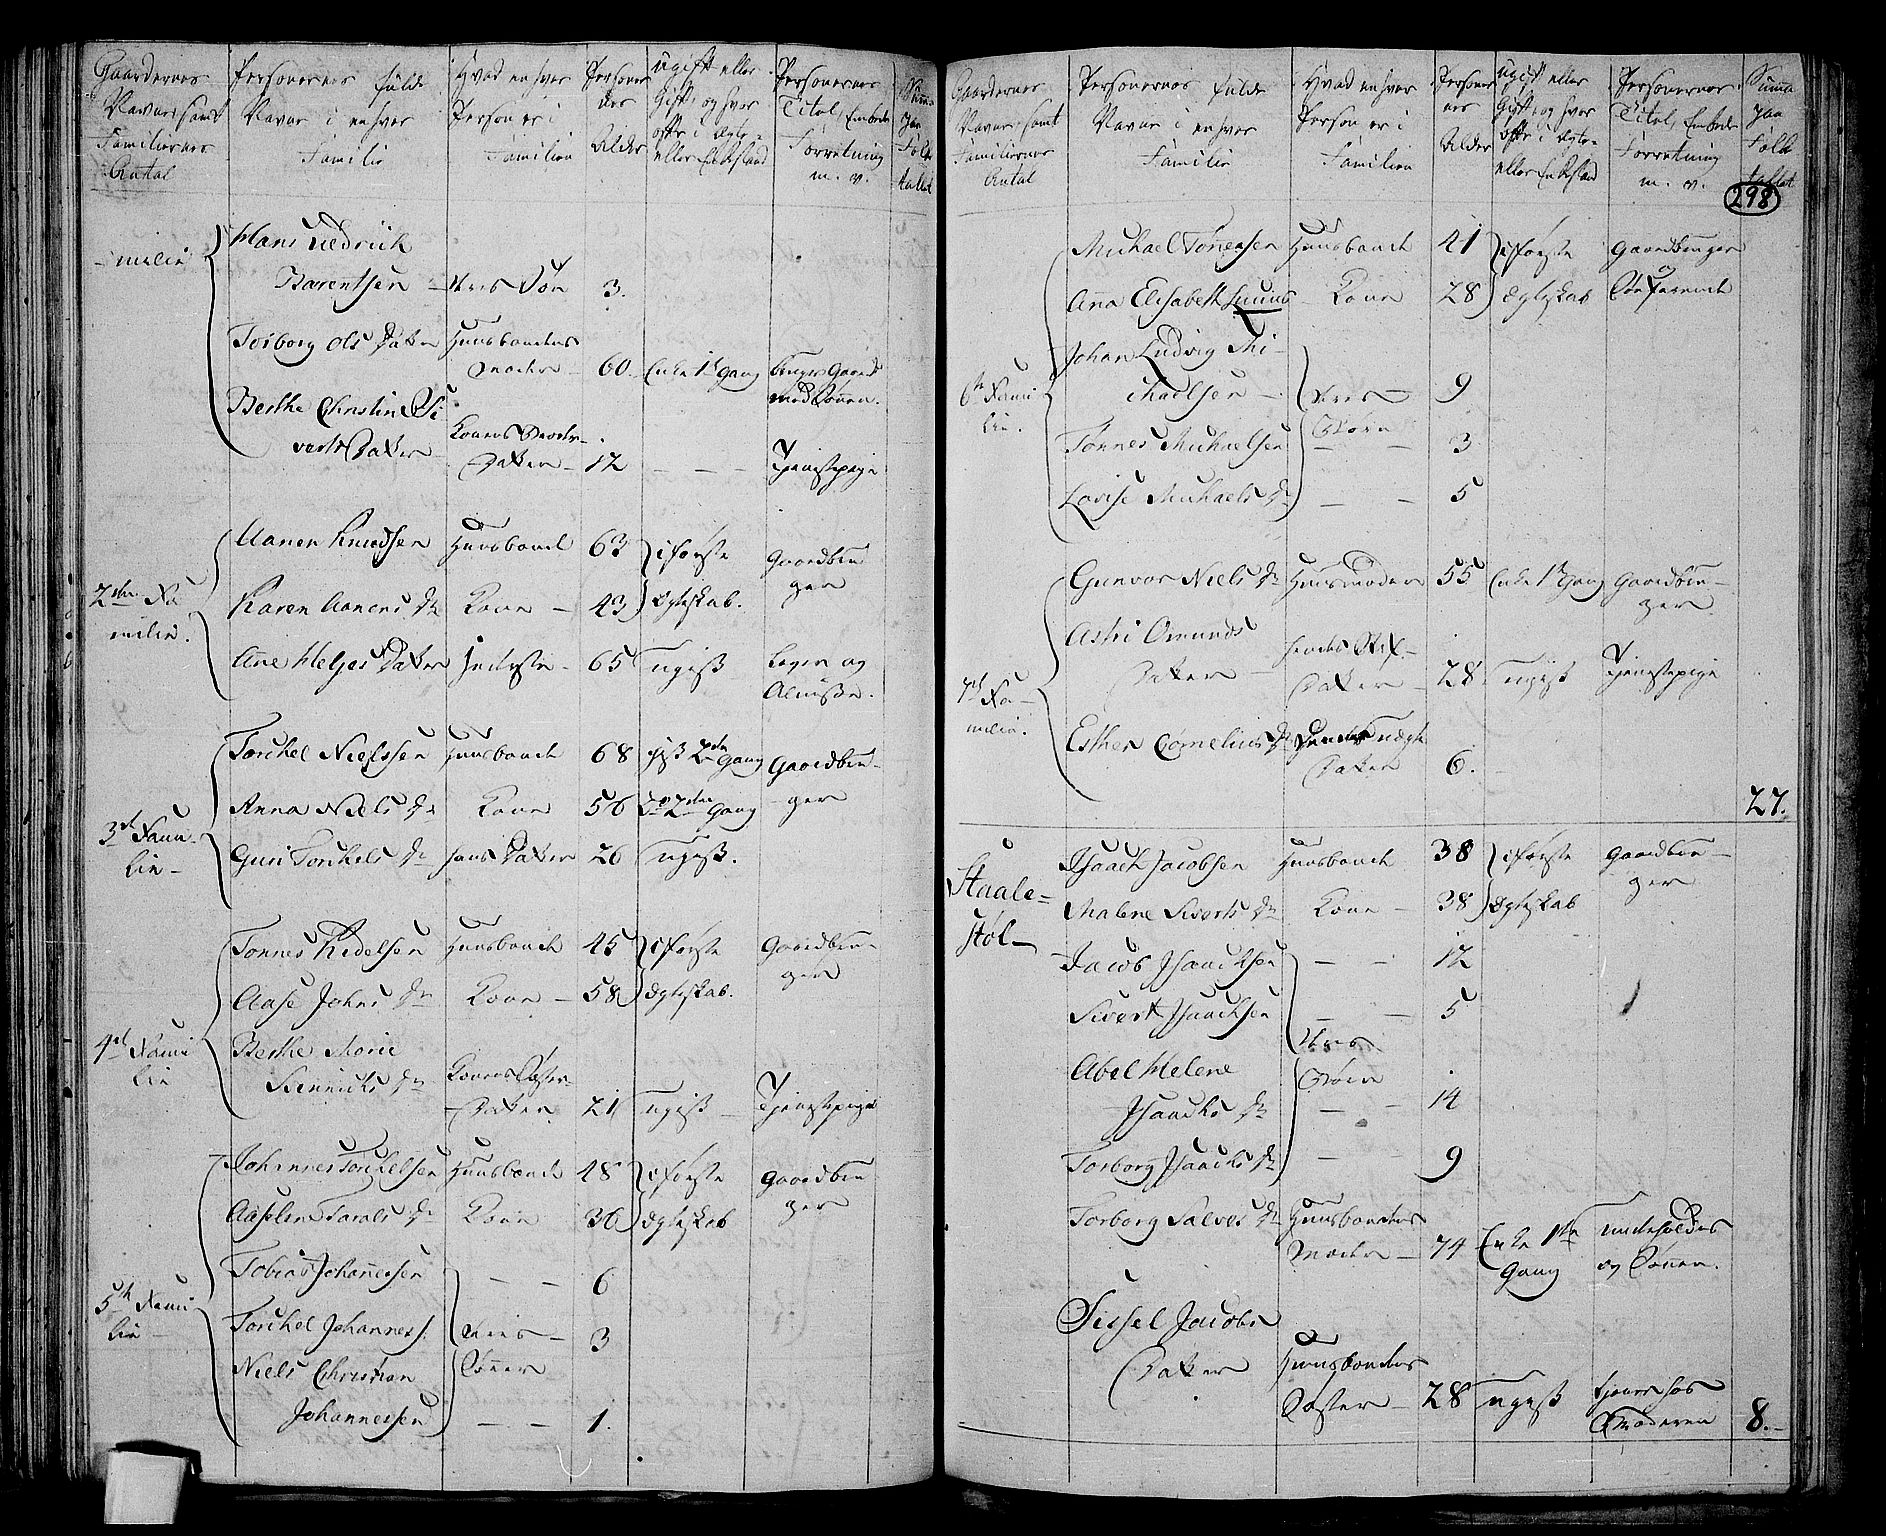 Gaardernes
Navne samt
Familiernes
Antal
Personernes fulde
Navne i enhver
Familie
Hvad enhver
Person er i
Familien
Personer
nes
Alder
ugift eller
Gift, og hvor
ofte i Ægte-
eller Enkestand
Personernes
Titel, Embede
Forretning
m. v.
Summa
paa
Folke
tallet
- milie
Hans Diedrich
Barentsen - deres Søn 3.
Torborg Ols Datter Huusbondens
Moder - 60. Enke 1te Gang bruger Gaard
med Sønnen.
Berthe Christine Si
verts Datter Konens Broder-
Datter - 12 - - - Tjenestepige
2den Fa
milie.
Aanen Knudsen Huusbond 63 i første Gaardbru
Karen Aanens Dr Kone - 43 Ægteskab. ger
Ane Helges Datter Inderste - 65 ugift Lagen og
Almisse.
3de Fami-
lie -
Torchel Nielssen Huusbonde 68 gift 2den Gang Gaardbru-
Anna Niels Dr Kone 56 do 2den Gang ger
Guri Torchels Dr hans Datter 26 ugift.
4de Fami
lie
Tønnes Kidelsen Huusbonde 45 i første Gaardbru-
Aase Johns Dr Kone - 58 Ægteskab. ger
Berthe Marie
Hennichs Dr Konens Søster-
Datter 21 ugift - Tjenestepige
5te Fami
lie -
Johannes Torchelsen Huusbonde 48 i første Gaardbru
Aaselene Tarals Dr Kone 36 Ægteskab ger
Tobias Johannessen - - 6
Torchel Johanness. deres - 3
Niels Christian Sønner
Johannessen - - 1.
Gaardernes
Navne samt
Familiernes
Antal
Personernes fulde
Navne i enhver
Familie
Hvad enhver
Person er i
Familien
Personer
nes
Alder
ugift eller
Gift, og hvor
ofte i Ægte-
eller Enkestand
Personernes
Titel, Embede
Forretning
m. v.
Summa
paa
Folke
tallet
298
6te Fami
lie.
Michael Tønnesen Huusbonde 41 i første Gaardbruger
Anna Elisabeth Lunds - Kone 28 Ægteskab og Søefarende
Johan Ludvig Mi-
chaelsen - deres - 9
Tønnes Michaelsen Børn - 3
Lovise Michaels Dr - - 5
7de Fa-
milie.
Gunvor Niels Dr Huusmoder 55 Enke 1te Gang Gaardbru-
ger
Astri Omunds
Datter - hendes Stif-
Datter - 28 ugift Tjenestepige
Esther Cornelius Dr Hendes uægte
Datter 6.
27.
Staale-
støl -
Isaach Jacobsen Huusbonde 38 i første Gaardbru-
Malene Siverts Dr Kone - 38 Ægteskab ger
Jacob Isaachsen - - 12
Sivert Isaachsen - - 5
deres
Abel Helene Børn
Isaachs Dr - - 14
Torborg Isaachs Dr - 9
Torborg Salves Dr Huusbondens
Moder - 74 Enke 1te underholdes
Gang og Sønnen.
Sissel Jacobs
Datter Huusbondens
Søster - 28 ugift tjener hos
Broderen 8. -